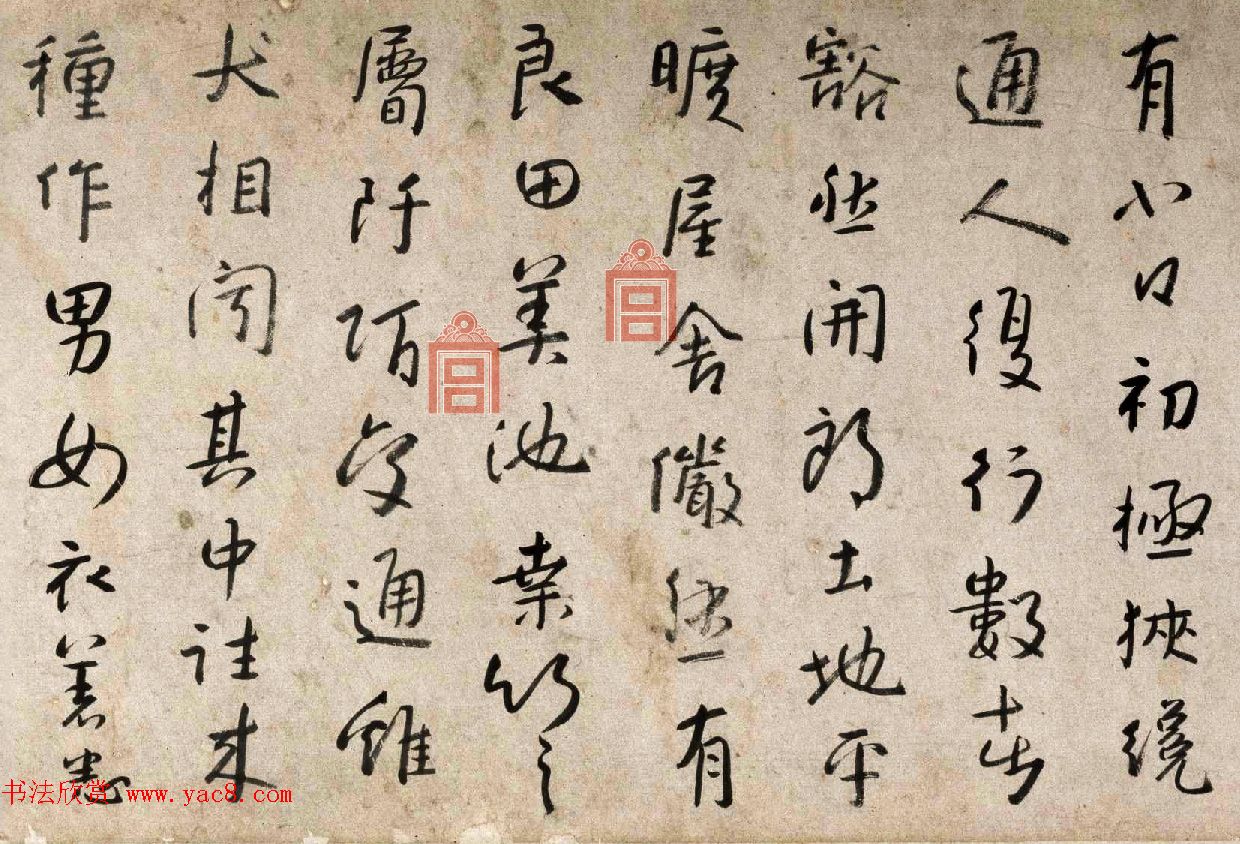 有小口初極狹纔
通人復行數十步
豁然開朗土地平
曠屋舍儼然有
良田美池桑竹之
層阡陌交通雞
犬相聞其中往來
種作男女衣着悉
书法欣赏 www.yac8.com